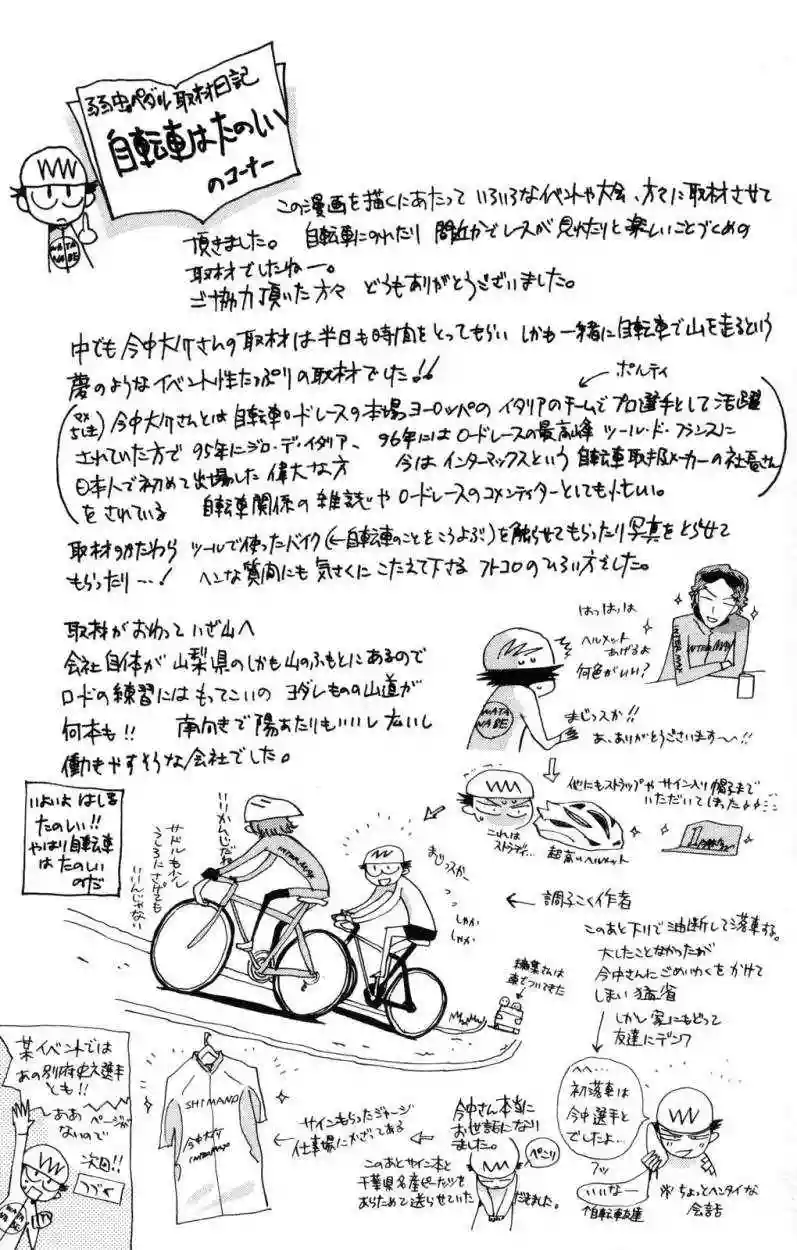 弱虫ペダル取材日記
自転車はたのしい
のコーナー
WATA
NABE
この漫画を描くにあたって いろいろなイベントや大会、方々に取材させて
頂きました。 自転車にのれたり 間近かでレースが見れたりと楽しいことづくめの
取材でしたねー。
ご協力頂いた方々 どうもありがとうございました。
中でも今中大介さんの取材は半日も時間をとってもらい しかも一緒に自転車で山を走るという
夢のようなイベント性たっぷりの取材でした!!
ポルティ
(マメちしき) 今中大介さんとは自転車ロードレースの本場ヨーロッパのイタリアのチームでプロ選手として活躍
されていた方で 95年にジロ・デ・イタリア、 96年にはロードレースの最高峰 ツール・ド・フランスに
日本人で初めて出場した偉大な方 今はインターマックスという自転車取扱メーカーの社長さん
をされている 自転車関係の雑誌やロードレースのコメンテイターとしても忙しい。
取材のかたわら ツールで使ったバイク(←自転車のことをこうよぶ)を触らせてもらったり写真をとらせて
もらったり…! ヘンな質問にも気さくにこたえて下さる フトコロのひろい方でした。
取材がおわっていざ山へ
会社自体が山梨県のしかも山のふもとにあるので
ロードの練習にはもってこいの ヨダレものの山道が
何本も!! 南向きで陽あたりもいいし広いし
働きやすそうな会社でした。
はっはっは
ヘルメット
あげるよ
何色がいい?
INTER MAX
INTERMAX
WATA
NABE
まじっスか!!
あ、ありがとうございます〜〜!!
他にもストラップやサイン入り帽子まで
いただいてしまった
これは
超高いヘルメット
いよいよ はしる
たのしい!!
やはり自転車
はたのしい
のだ
いいかんじだね
サドルも少し
うしろにさげても
いいんじゃない
INTERMAX
まじっスかー
しゃか
しゃか
編集さんは
車でついてきた
← 調子こく作者
このあと下りで油断して落車する。
大したことなかったが
今中さんにごめいわくをかけて
しまい猛省
しかし家にもどって
友達にデンワ
へへ…
初落車は
今中選手と
でしたよ…
フッ
いいなー
自転車友達
※ちょっとヘンタイな
会話
某イベントでは
あの別府史之選手
とも!!
ああ
ページが
ないので
次回!!
つづく
WATA
NABE
SHIMANO
今中大介
INTERMAX
サインもらったジャージ
仕事場にかざってある
今中さん本当に
お世話になり
ました。
ペこり
このあとサイン本と
千葉県名産ピーナッツを
あらためて送らせていただきました。